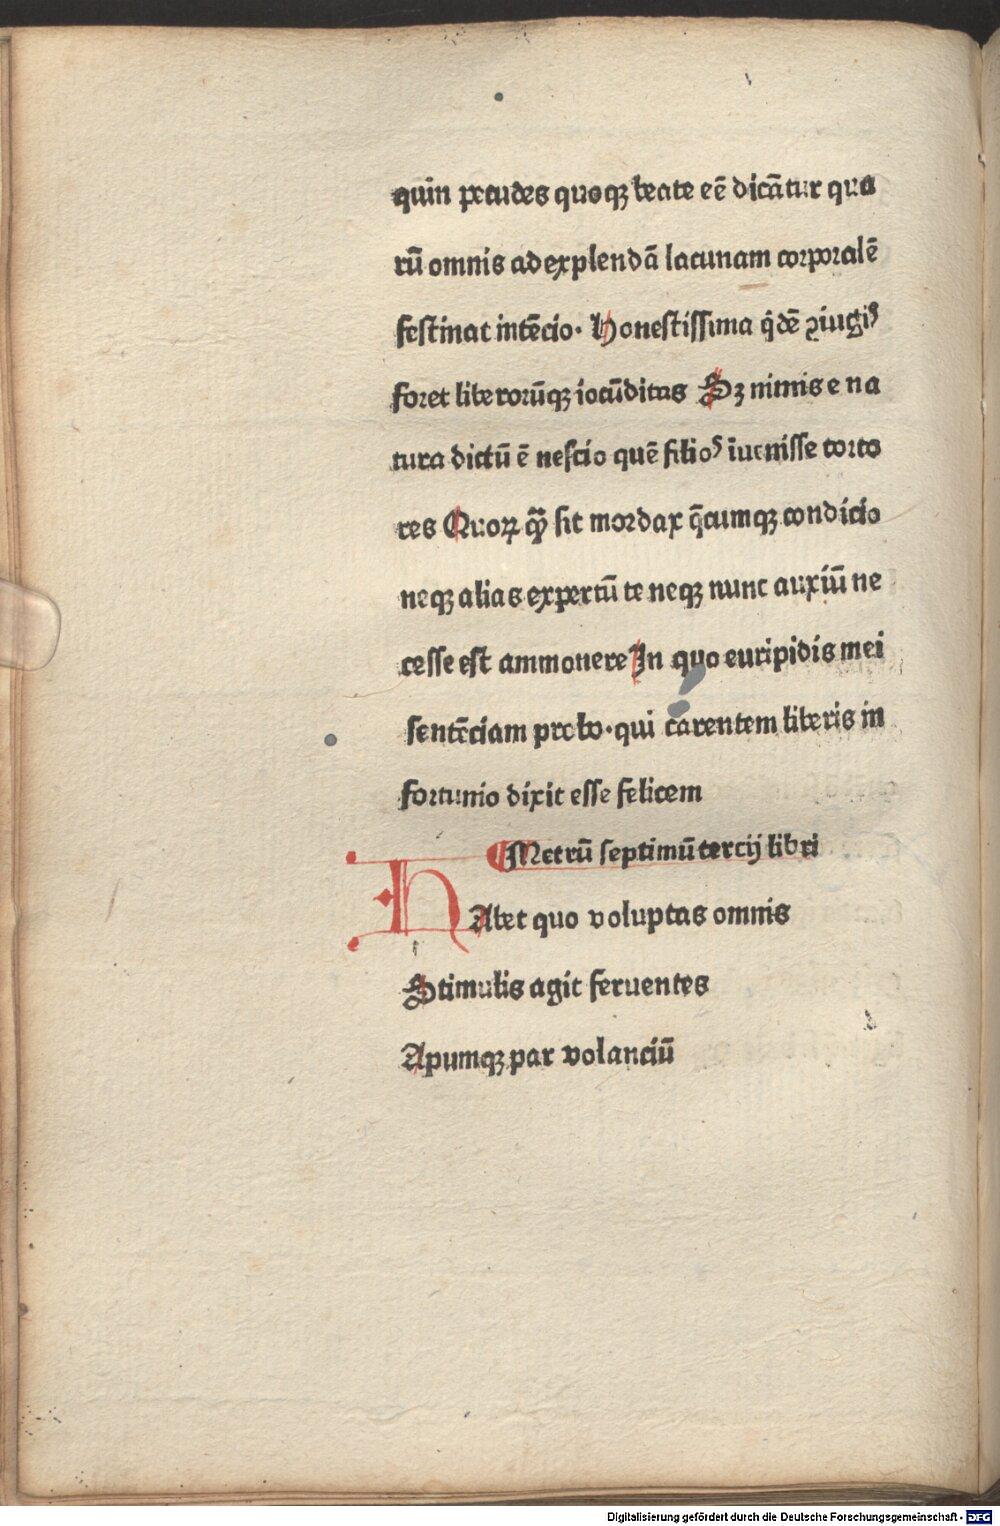 quin pecudes quoqꝫ beate eē dicātur qua
rū omnis ad explendā lacunam corporalē
festinat intēcio· Honestissima q̇dē ꝯiugiꝰ
foret liberorūqꝫ iocūditas Sꝫ nimis e na
tura dictū ē nescio quē filioꝰ īuenisse torto
res Quoꝝ qꝫ̄ sit mordax q̄cumqꝫ condicio
neqꝫ alias expertū te neqꝫ nunc auxiū ne
cesse est ammonere In quo euripidis mei
sentēciam probo·qui carentem liberis in
fortunio dixit esse felicem
Metrū septimū tercij libri
HAbet quo voluptas omnis
Stimulis agit feruentes
Apumqꝫ par volanciū
Digitalisierung gefördert durch die Deutsche Forschungsgemeinschaft - DFG